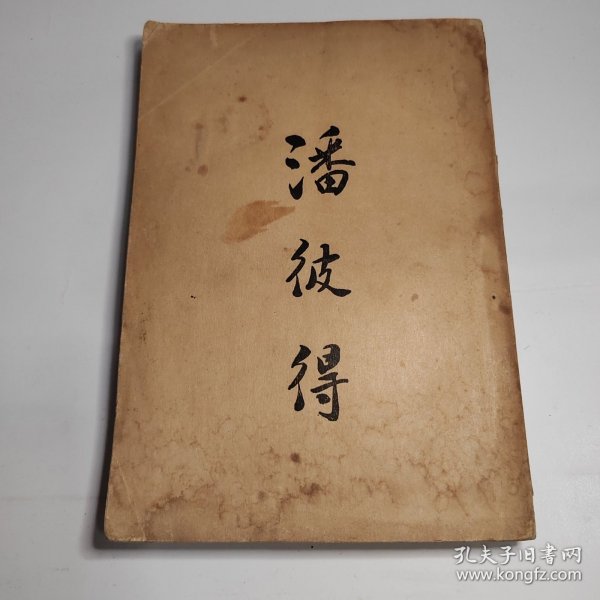 潘彼得
孔夫子旧书网
www.kongfz.com